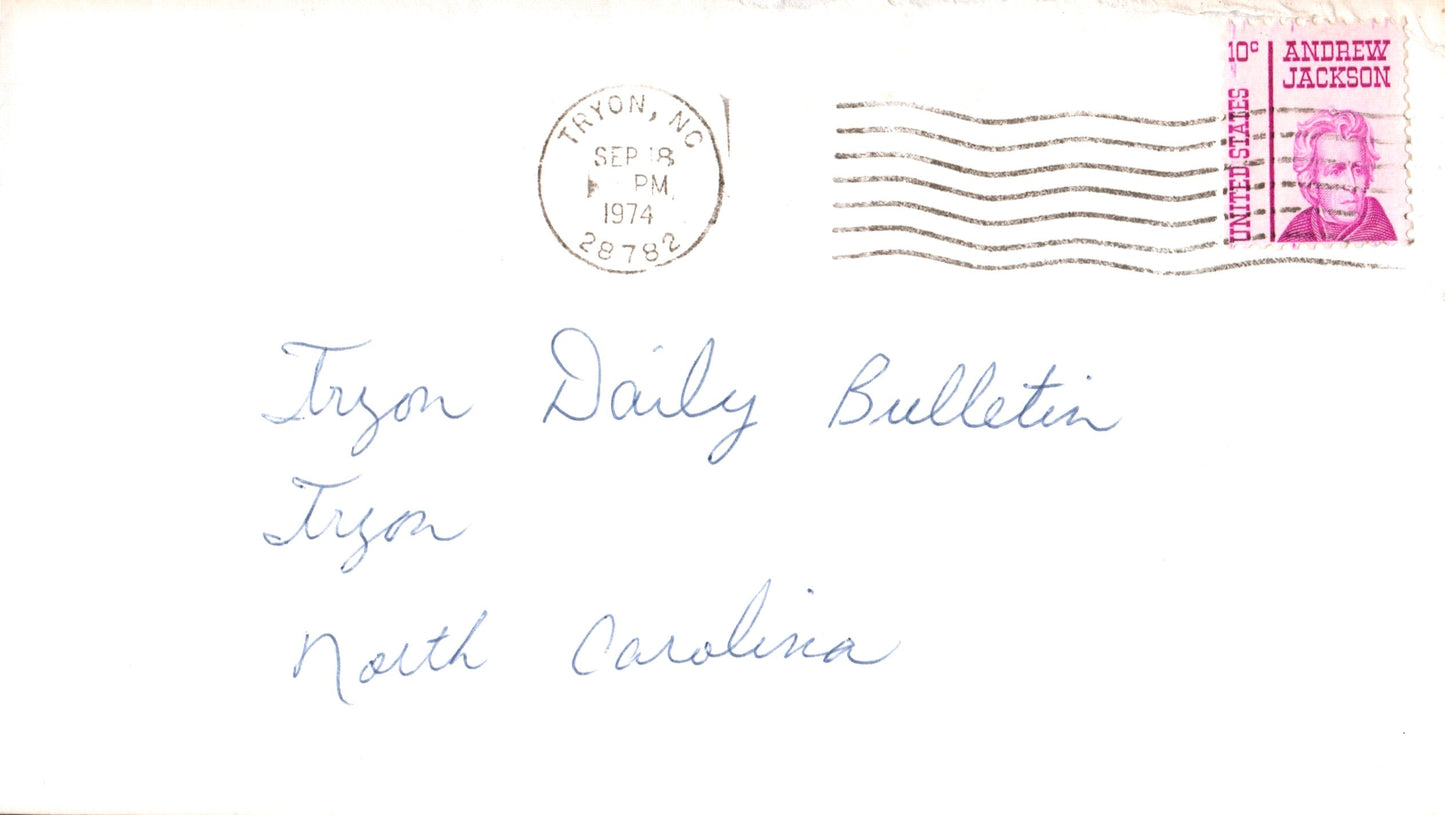 10c ANDREW
JACKSON
UNITED STATES
TRYON, NC
SEP 18
PM
1974
28782
Tryon Daily Bulletin
Tryon
North Carolina